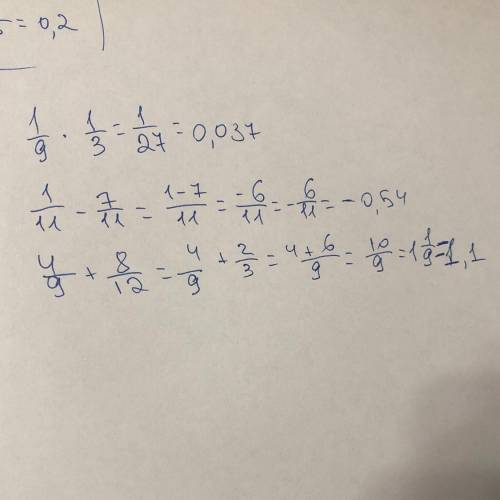 = 0,2
1/9 · 1/3 = 1/27 = 0,037
1/11 - 7/11 = 1-7/11 = -6/11 = -6/11 = -0,54
4/9 + 8/12 = 4/9 + 2/3 = 4+6/9 = 10/9 = 1 1/9 = 1,1